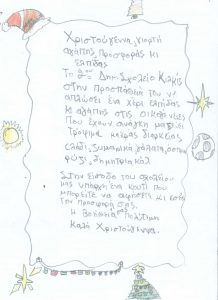 Χριστούγεννα, γιορτή
αγάπης, προσφοράς κι
ελπίδας
Το 2ο Δημ. Σχολείο
στην προσπάθεια του να
απλώσει ένα χέρι ελπίδας
κι αγάπης στις οικογένειες
που έχουν ανάγκη μαζεύει
τρόφιμα μακράς διαρκείας,
λάδι, ζυμαρικά, γάλατα, όσπρια
ρύζι, δημητριακά
Στην είσοδο του σχολείου
μας υπάρχει ένα κουτί που
μπορείτε να αφήσετε κι εσείς
την προσφορά σας.
Η βοήθειά μας πολύτιμη
Καλά Χριστούγεννα.